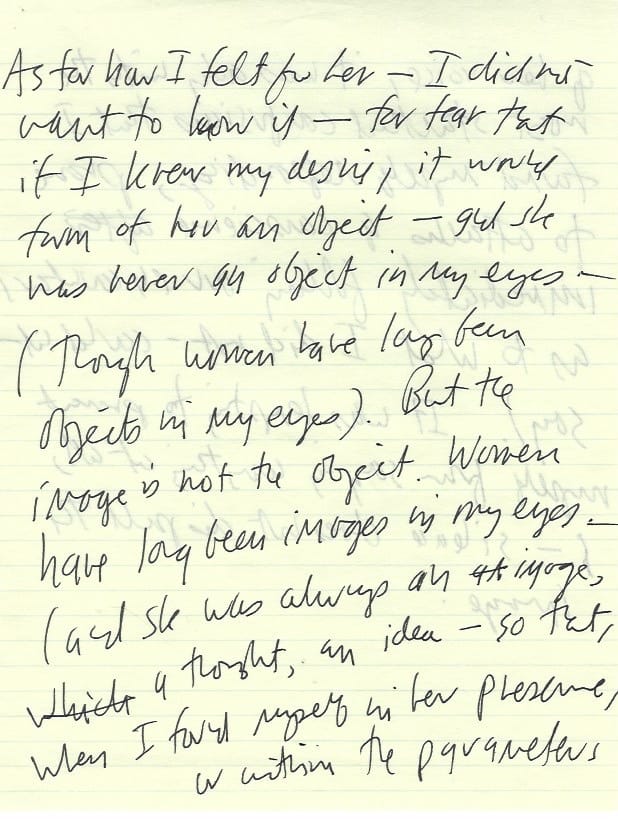 As for how I felt for her — I did not
want to know it — for fear that
if I knew my desire, it would
form of her an object — and she
was never an object in my eyes —
(though women have long been
objects in my eyes). But the
image is not the object. Women
have long been images in my eyes —
(and she was always an image,
a thought, an idea — so that,
when I found myself in her presence,
or within the parameters